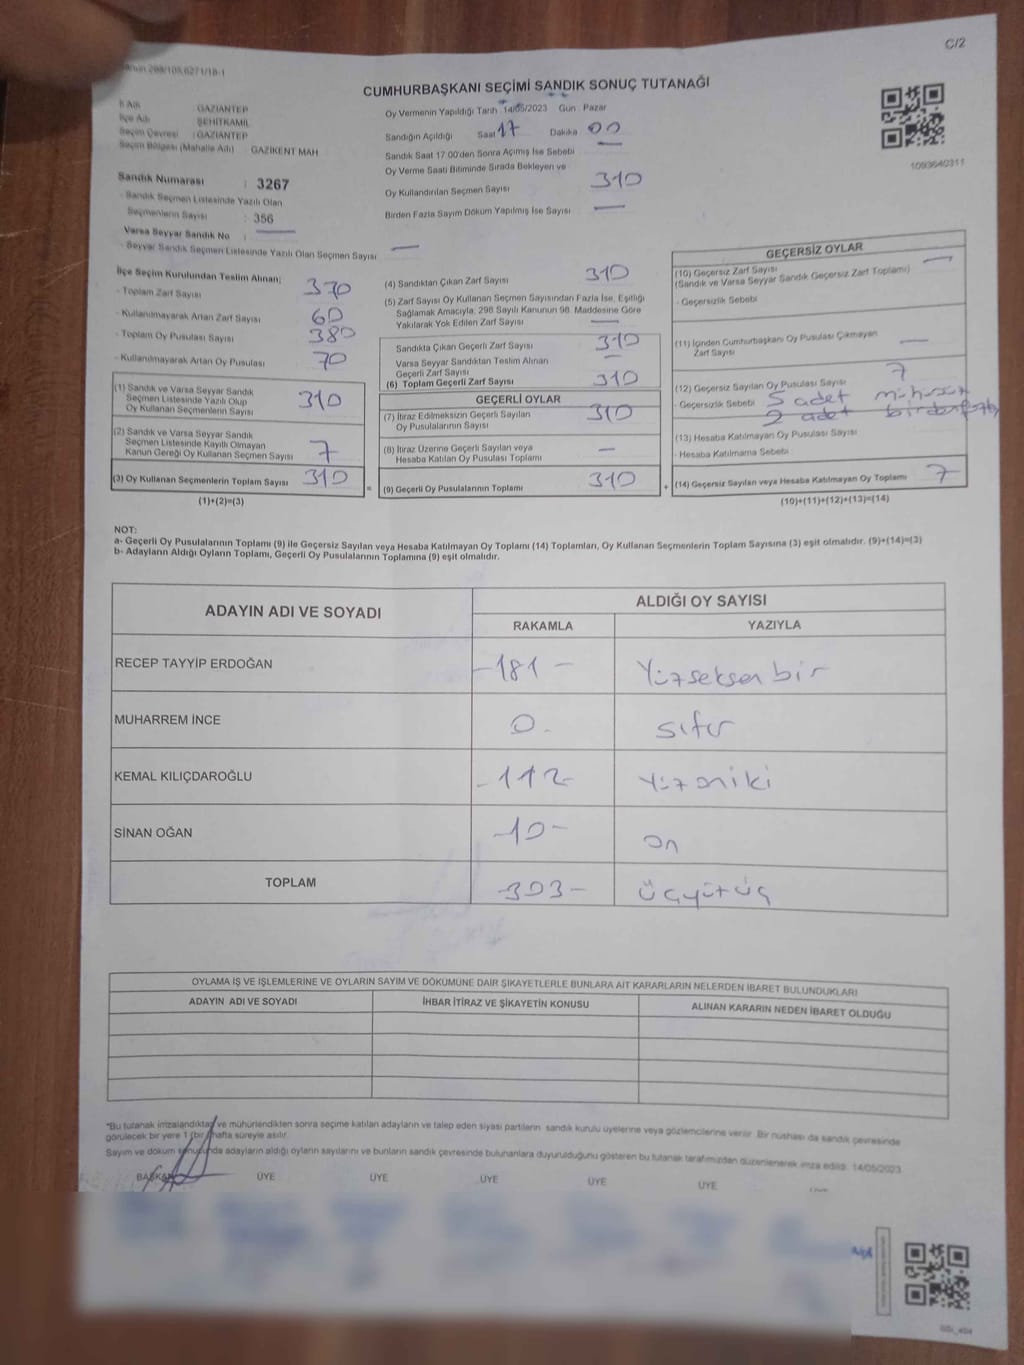 C/2
CUMHURBAŞKANI SEÇİMİ SANDIK SONUÇ TUTANAĞI
İl Adı GAZİANTEP
İlçe Adı ŞEHİTKAMİL
Seçim Çevresi : GAZİANTEP
Seçim Bölgesi (Mahalle Adı) : GAZİKENT MAH
Sandık Numarası : 3267
- Sandık Seçmen Listesinde Yazılı Olan
Seçmenlerin Sayısı : 356
Varsa Seyyar Sandık No : —
- Seyyar Sandık Seçmen Listesinde Yazılı Olan Seçmen Sayısı —
Oy Vermenin Yapıldığı Tarih 14/05/2023 Gün : Pazar
Sandığın Açıldığı Saat 17 Dakika 00
Sandık Saat 17:00'den Sonra Açımış İse Sebebi —
Oy Verme Saati Bitiminde Sırada Bekleyen ve
Oy Kullandırılan Seçmen Sayısı 310
Birden Fazla Sayım Döküm Yapılmış İse Sayısı —
1093640311
İlçe Seçim Kurulundan Teslim Alınan;
- Toplam Zarf Sayısı 370
- Kullanılmayarak Artan Zarf Sayısı 60
- Toplam Oy Pusulası Sayısı 380
- Kullanılmayarak Artan Oy Pusulası 70
(1) Sandık ve Varsa Seyyar Sandık
Seçmen Listesinde Yazılı Olup
Oy Kullanan Seçmenlerin Sayısı 310
(2) Sandık ve Varsa Seyyar Sandık
Seçmen Listesinde Kayıtlı Olmayan
Kanun Gereği Oy Kullanan Seçmen Sayısı 7
(3) Oy Kullanan Seçmenlerin Toplam Sayısı 310
(1)+(2)=(3)
(4) Sandıktan Çıkan Zarf Sayısı 310
(5) Zarf Sayısı Oy Kullanan Seçmen Sayısından Fazla İse, Eşitliği
Sağlamak Amacıyla; 298 Sayılı Kanunun 98. Maddesine Göre
Yakılarak Yok Edilen Zarf Sayısı —
Sandıkta Çıkan Geçerli Zarf Sayısı 310
Varsa Seyyar Sandıktan Teslim Alınan
Geçerli Zarf Sayısı —
(6) Toplam Geçerli Zarf Sayısı 310
GEÇERLİ OYLAR
(7) İtiraz Edilmeksizin Geçerli Sayılan
Oy Pusulalarının Sayısı 310
(8) İtiraz Üzerine Geçerli Sayılan veya
Hesaba Katılan Oy Pusulası Toplamı —
(9) Geçerli Oy Pusulalarının Toplamı 310
=
+
GEÇERSİZ OYLAR
(10) Geçersiz Zarf Sayısı
(Sandık ve Varsa Seyyar Sandık Geçersiz Zarf Toplamı) —
- Geçersizlik Sebebi
(11) İçinden Cumhurbaşkanı Oy Pusulası Çıkmayan
Zarf Sayısı —
(12) Geçersiz Sayılan Oy Pusulası Sayısı 7
- Geçersizlik Sebebi 5 adet mühürsüz
2 adet birden fazla
(13) Hesaba Katılmayan Oy Pusulası Sayısı
- Hesaba Katılmama Sebebi :
(14) Geçersiz Sayılan veya Hesaba Katılmayan Oy Toplamı 7
(10)+(11)+(12)+(13)=(14)
NOT:
a- Geçerli Oy Pusulalarının Toplamı (9) ile Geçersiz Sayılan veya Hesaba Katılmayan Oy Toplamı (14) Toplamları, Oy Kullanan Seçmenlerin Toplam Sayısına (3) eşit olmalıdır. (9)+(14)=(3)
b- Adayların Aldığı Oyların Toplamı, Geçerli Oy Pusulalarının Toplamına (9) eşit olmalıdır.
ADAYIN ADI VE SOYADI
ALDIĞI OY SAYISI
RAKAMLA YAZIYLA
RECEP TAYYİP ERDOĞAN -181- Yüzseksen bir
MUHARREM İNCE 0. sıfır
KEMAL KILIÇDAROĞLU -112- Yüz oniki
SİNAN OĞAN -10- on
TOPLAM -303- üçyüzüç
OYLAMA İŞ VE İŞLEMLERİNE VE OYLARIN SAYIM VE DÖKÜMÜNE DAİR ŞİKAYETLERLE BUNLARA AİT KARARLARIN NELERDEN İBARET BULUNDUKLARI
ADAYIN ADI VE SOYADI İHBAR İTİRAZ VE ŞİKAYETİN KONUSU ALINAN KARARIN NEDEN İBARET OLDUĞU
*Bu tutanak imzalandıktan ve mühürlendikten sonra seçime katılan adayların ve talep eden siyasi partilerin sandık kurulu üyelerine veya gözlemcilerine verilir. Bir nushası da sandık çevresinde
görülecek bir yere 1 (bir) hafta süreyle asılır.
Sayım ve döküm sonucunda adayların aldığı oyların sayılarını ve bunların sandık çevresinde bulunanlara duyurulduğunu gösteren bu tutanak tarafımızdan düzenlenerek imza edildi. 14/05/2023
BAŞKAN ÜYE ÜYE ÜYE ÜYE ÜYE